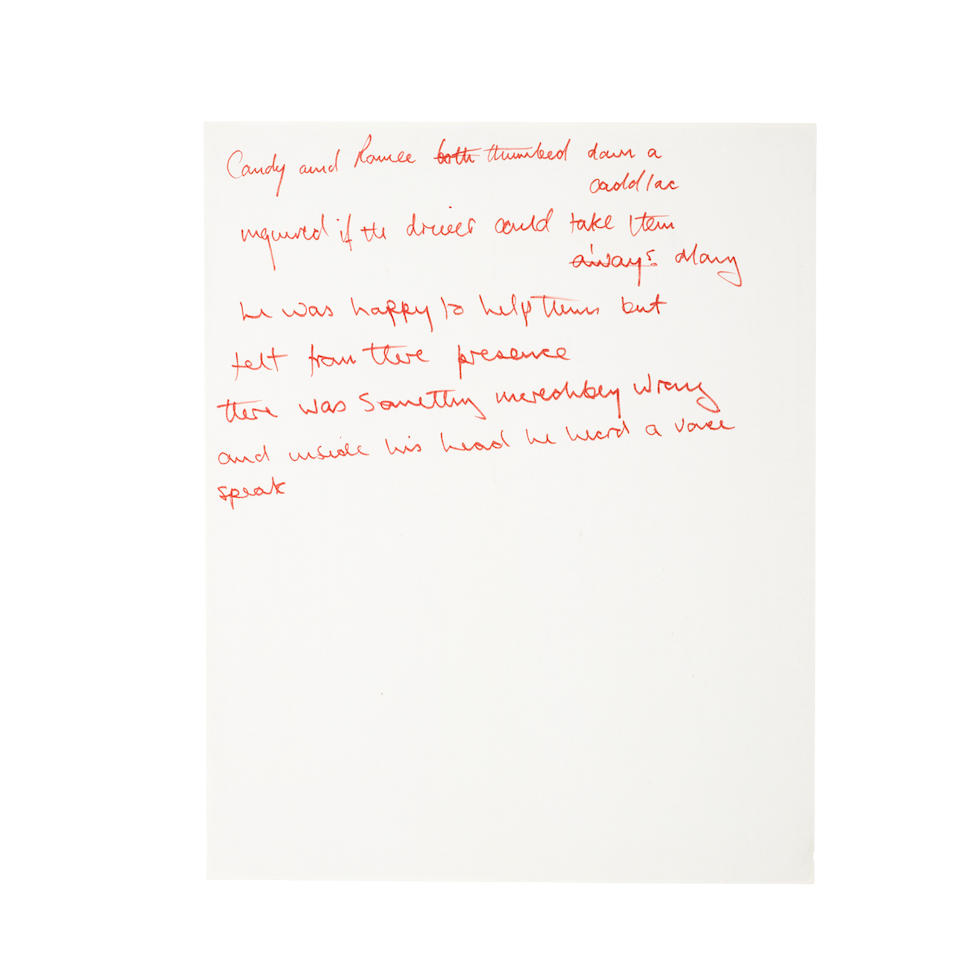 Candy and Ronnee both thumbed down a
caddlac
inquired if the driver could take them
always along
he was happy to help them but
felt from there presence
there was something incredibley wrong
and inside his head he heard a voice
speak